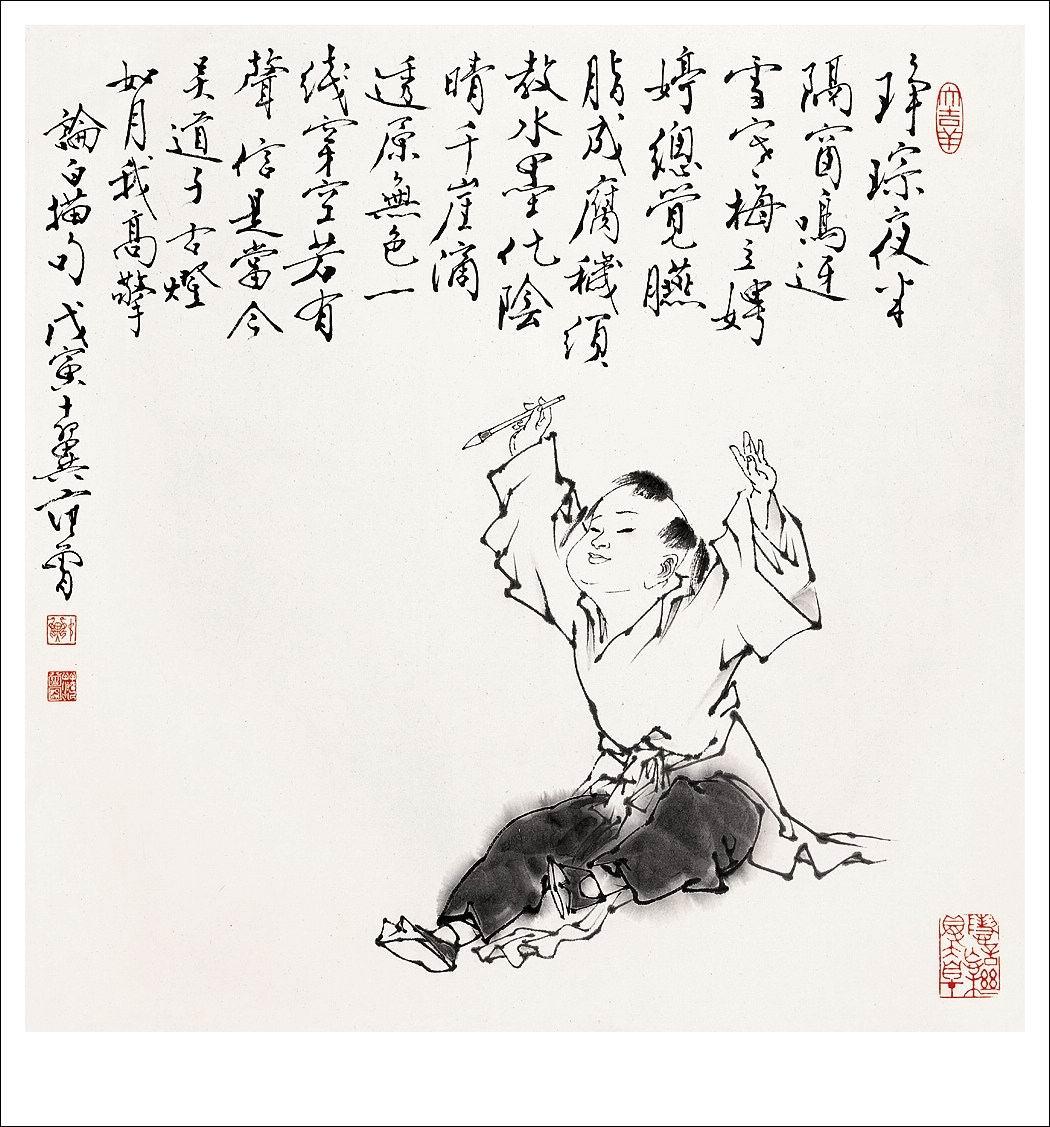 琤琮夜半
隔窗鳴迓
雪寒梅立娉
婷總覺臙
脂成腐穢須
教水墨化陰
晴千崖滴
透原無色一
线穿空若有
聲信是當今
吴道子古燈
如月我高擎
論白描句戊寅十翼范曾